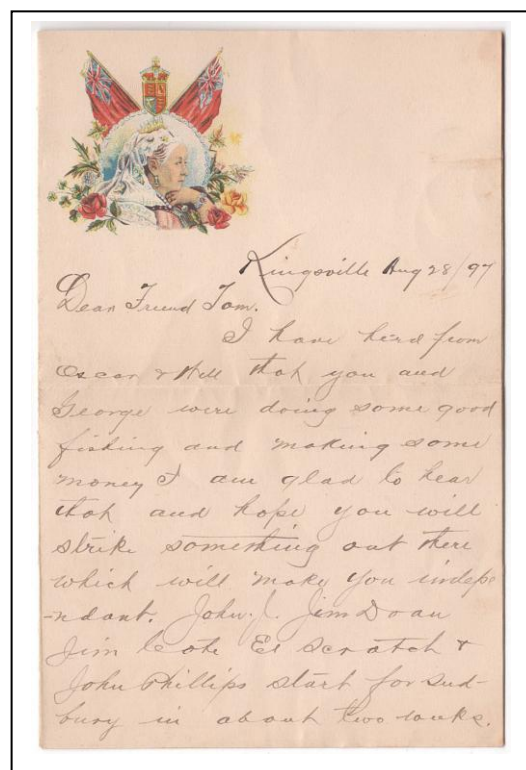 Kingsville Aug 28/97
Dear Friend Tom.
I have herd from
Oscar & Will that you and
George were doing some good
fishing and making some
money I am glad to hear
that and hope you will
strike something out there
which will make you indepe
-ndant. John. J. Jim Doan
Jim Cote Ed Scratch &
John Phillips start for Sud-
bury in about two weeks.